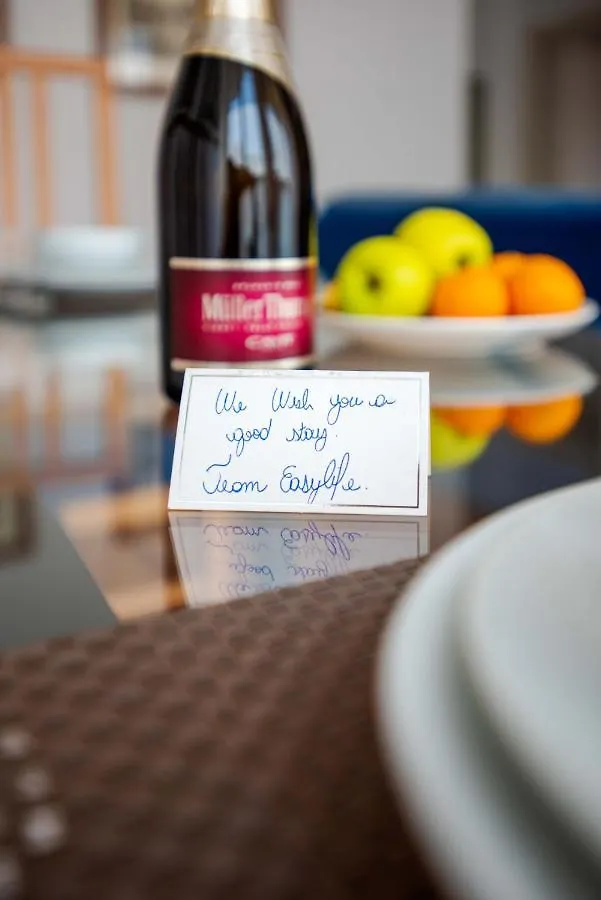 Müller Thur
We Wish you a
good stay.
Team Easylife.